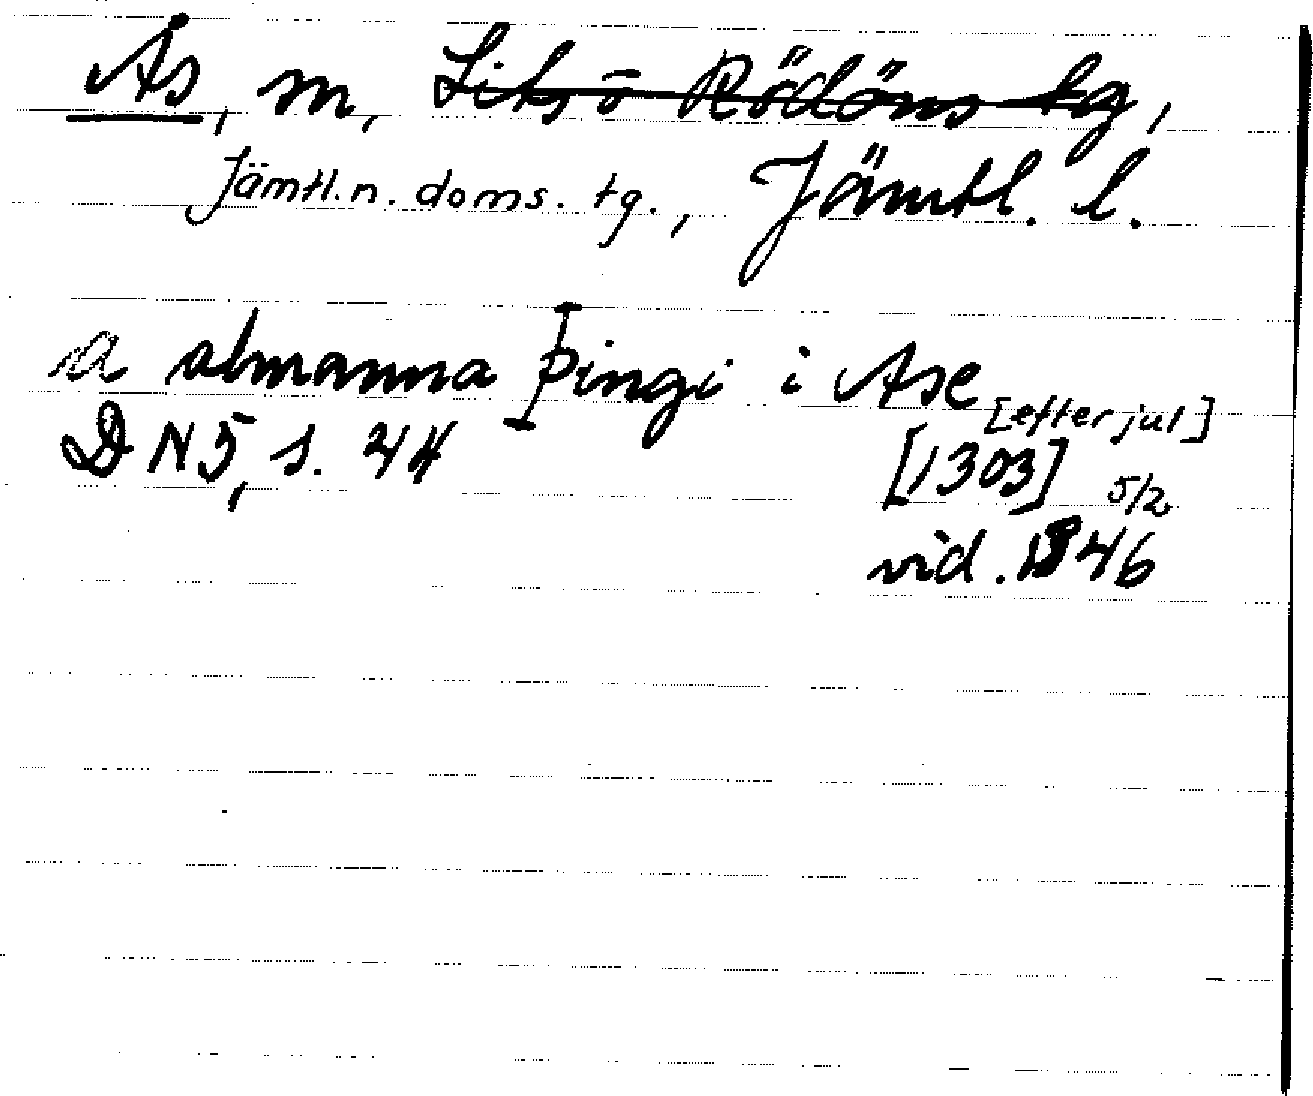 Ås, m, Lits o Rödöns tg,
Jämtl. n. doms. tg., Jämtl. l.
a almanna þingi i Ase
[efter jul]
DN5, s. 44 [1303] 5/2
vid. 1346